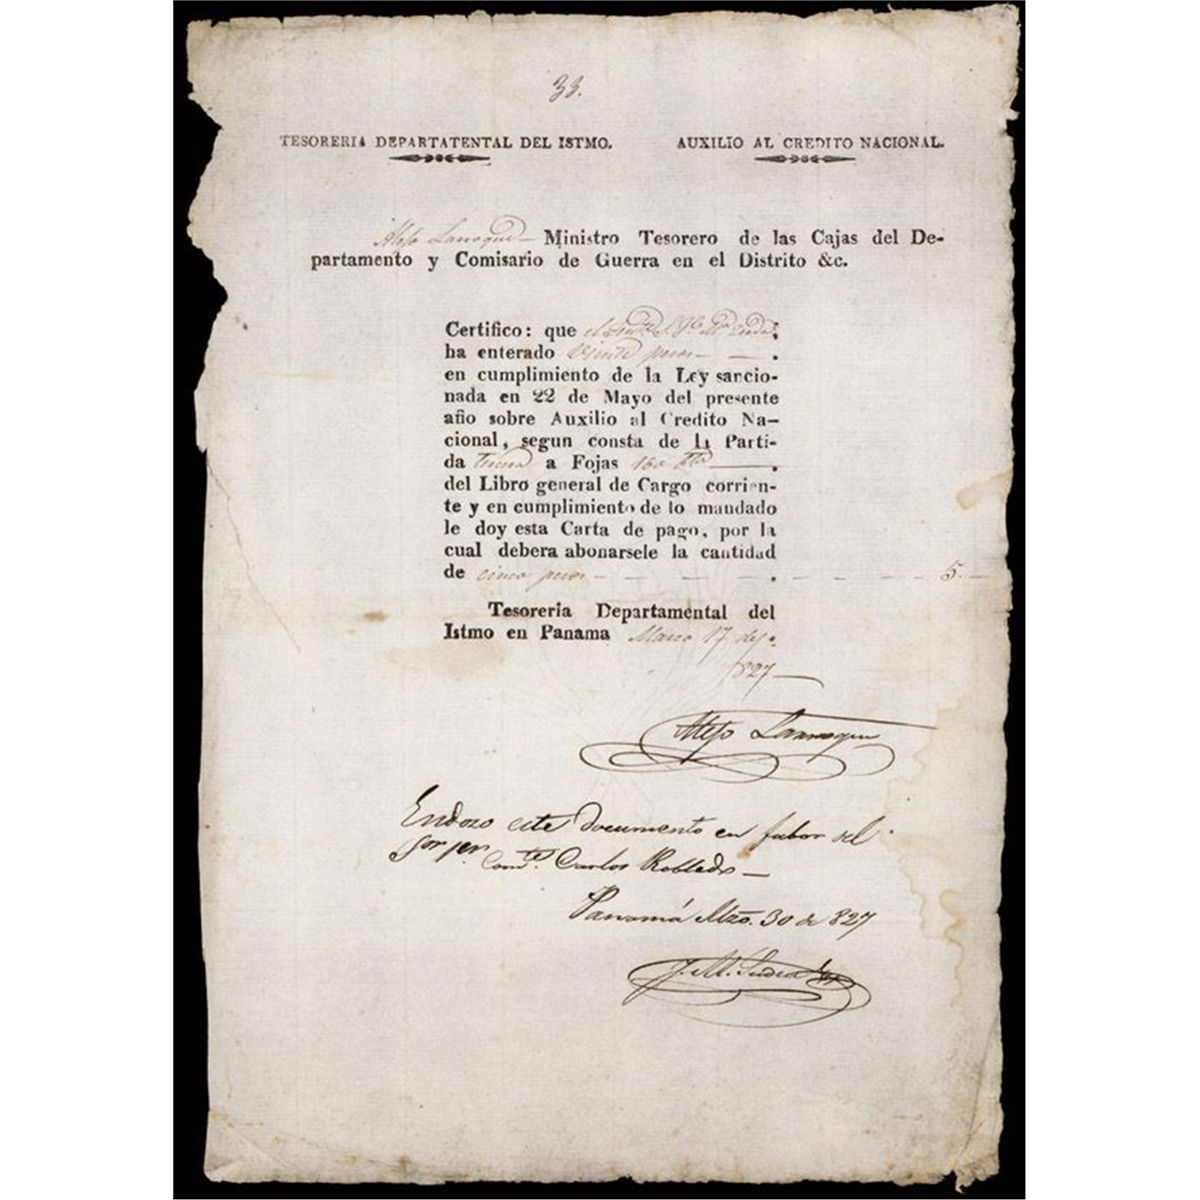 33.
TESORERIA DEPARTATENTAL DEL ISTMO. AUXILIO AL CREDITO NACIONAL.
Alejo Ministro Tesorero de las Cajas del De-
partamento y Comisario de Guerra en el Distrito &c.
Certifico: que el
ha enterado veinte pesos .
en cumplimiento de la Ley sancio-
nada en 22 de Mayo del presente
año sobre Auxilio al Credito Na-
cional, segun consta de la Parti-
da a Fojas 160 .
del Libro general de Cargo corrien-
te y en cumplimiento de lo mandado
le doy esta Carta de pago, por la
cual debera abonarsele la cantidad
de cinco pesos - - - . - - - - - 5. -
Tesoreria Departamental del
Istmo en Panama Marzo 17 de
827
Alejo
Endoso este documento en fabor del
Sor Comte. Carlos Robledo
Panamá Mzo. 30 de 827
J. M.